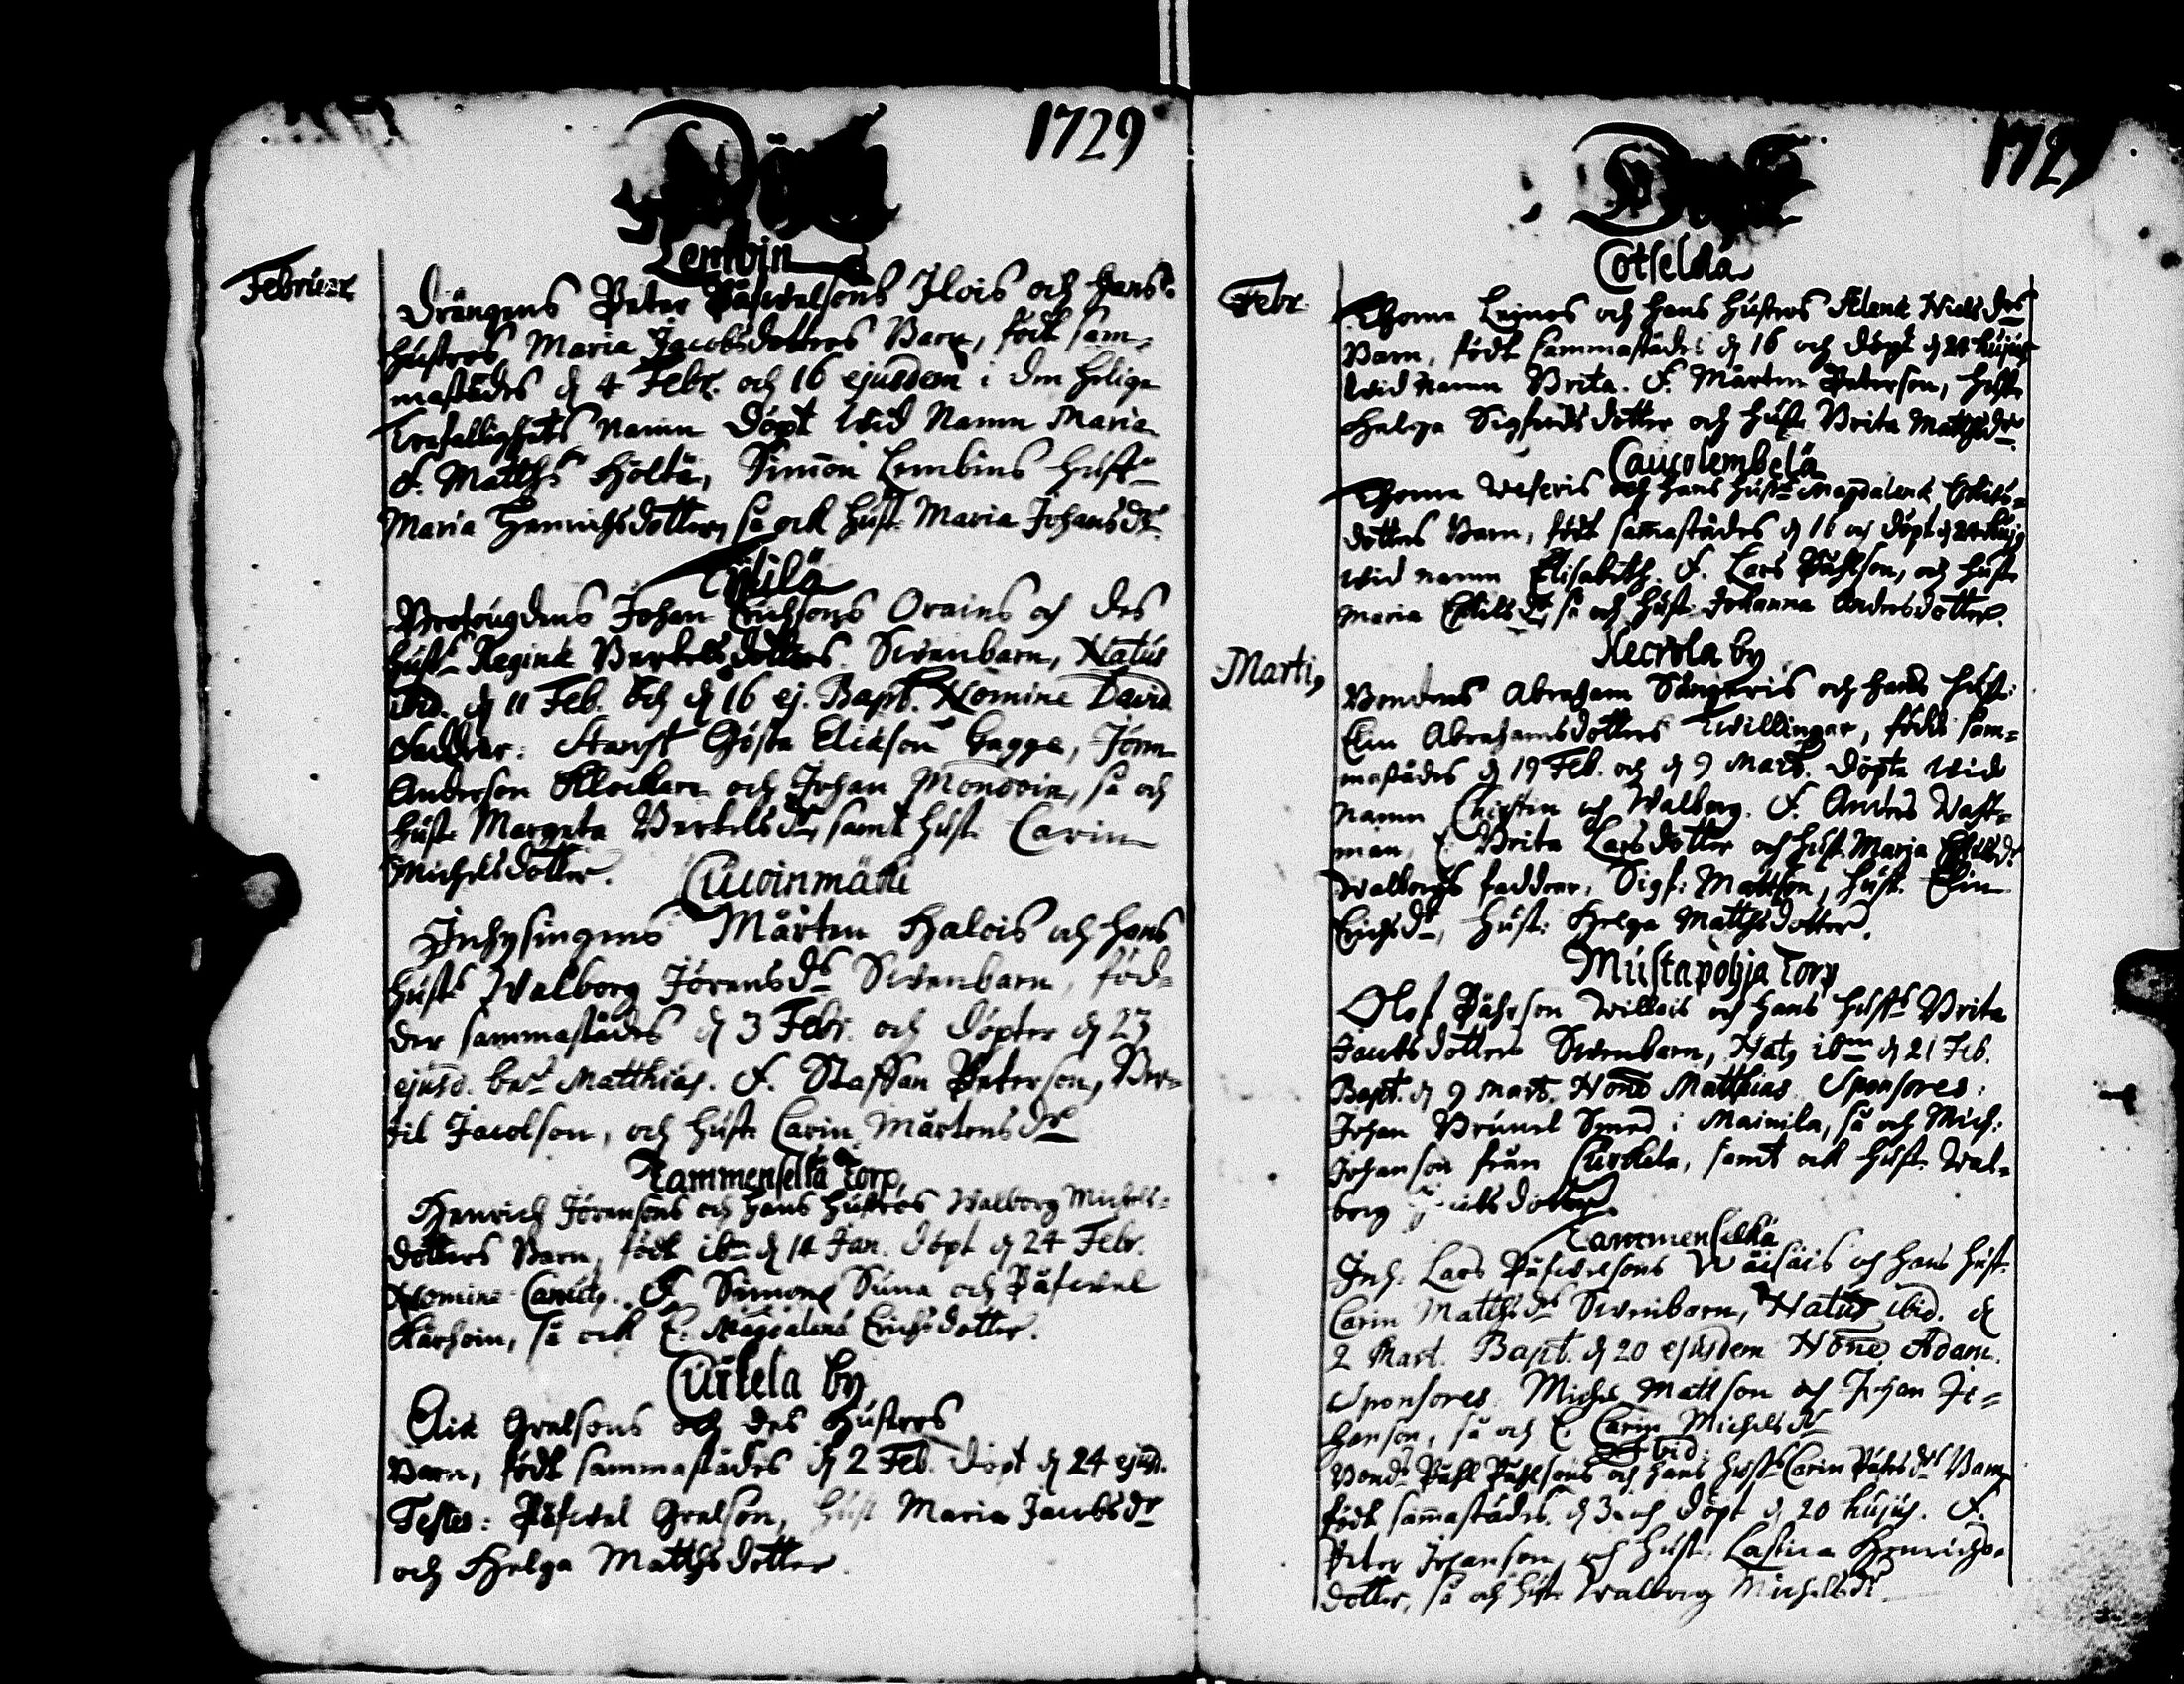 1729
Döpte
Lembin
Februar.
Drängens Peter Påfwelsons Ilois och hans
hustros Maria Jacobsdotters Barn, födt sam-
mastädes d 4 Febr. och 16 ejusdem i den helige
Trefallighets namn döpt wid Namn Maria
F. Matths Höltä, Simon Lembins hust.
Maria Henrichsdotter, så ock hust. Maria Johansdr.
Johan Erichsons Orains och des
hustr Regina Bertelsdotters Swenbarn, Natus
ibid. d 11 Feb. och d 16 ej. Bapt. Nomine David
Faddrar: Gösta Ericson Hagge, Jörn
Anderson Klockare och Johan Monovin, så och
hust. Margeta Bertelsdr samt hust. Carin
Michelsdotter.
Cuwinmäki
Inhysingens Mårten Halois och hans
hustr Walborg Jörensdr Swenbarn, föd-
der sammastädes d 3 Febr. och döpter d 23
ejusd. Matthias. F. Staffan Peterson, Ber-
til Jacobson, och hust. Carin Mårtensdr
Tammenselkä Torp,
Henrich Jörensons och hans hustros Walborg Michels-
dotters Barn, födt ibm d 14 Jan. döpt d 24 Febr.
Nomine Canuts. F. Simon Suna och Påfwel
Kärhoin, så ock E. Magdalena Erichsdotter.
Curkela by
Eric Grelsons och des Hustros
Barn, födt sammastädes d 2 Feb. döpt d 24 ejusd.
Testes: Påfwel Grelson, hust Maria Jacobsdr
och Helga Matthsdotter.
1729
Döpte
Cotselkä
Febr.
Thoma Leinos och hans hustros Elena Nielsdrs
Barn, födt sammastädes d 16 och döpt d 24 hujus
wid namn Brita. F. Mårten Peterson, hust.
Helga Sigfredsdotter och hust. Brita Matthsdr.
Caucolembelä
Thoma Weseris och hans hustr Magdalena Eskils-
dotters Barn, födt samastädes d 16 och döpt d 24 huj9
wid namn Elisabeth. F. Lars Påhlson, och hust.
Maria Eskilsdr, så och hust. Johanna Andersdotter.
Kecrola by
Marti9
Bondens Abraham Sångeris och hans hust.
Elin Abrahamsdotters Twillingar, födde sam-
mastädes d 19 Feb. och d 9 Mart. döpta wid
namn Christin och Walborg. F. Anders Wast-
man, E. Brita Larsdotter och hust. Maria Eskilsdr
Walborgs faddrar, Sigf: Mattson, hust. Elin
Erichsdr, hust: Helga Matthsdotter.
Mustapohja Torp
Olof Påhrson Willais och hans hustrs Brita
Jacobsdotters Swenbarn, Nat9 ibm d 21 Feb.
Bapt. d 9 Mart. None Matthias. Sponsores:
Johan Brunel Smed i Mainila, så och Mich:
Johanson från Curckela, samt ock hust. Wal-
borg
Tammenselkä
Inh. Lars Påfwelsons Wäisäis och hans hust.
Carin Matthsdrs Swenbarn, Natus ibid. d
2 Mart. Bapt. d 20 ejusdem None Adam.
Sponsores. Michel Mattson och Johan Jo-
hanson, så och E. Carin Michelsdr
Ibid.
Bonds Påhl Påhlsons och hans hustrs Carin Påhrsdrs Barn
födt samastädes d 3 och döpt d 20 hujus. F.
Peter Johanson, och hust. Lastica Henrichs-
dotter, så och hust. Walborg Michelsdr